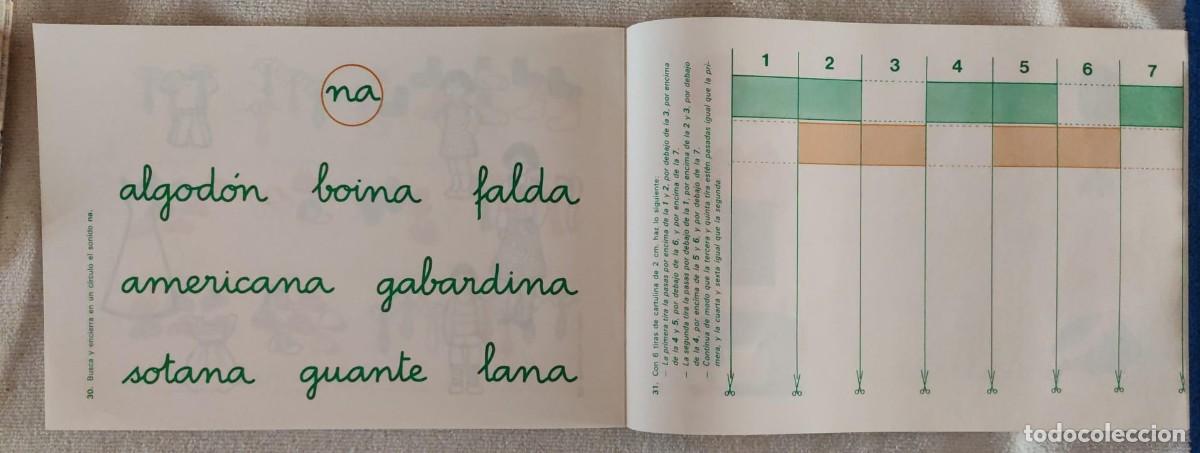 30. Busca y encierra en un círculo el sonido na.
na
algodón boina falda
americana gabardina
sotana guante lana
31. Con 6 tiras de cartulina de 2 cm. haz lo siguiente:
— La primera tira la pasas por encima de la 1 y 2, por debajo de la 3, por encima
de la 4 y 5, por debajo de la 6, y por encima de la 7.
— La segunda tira la pasas por debajo de la 1, por encima de la 2 y 3, por debajo
de la 4, por encima de la 5 y 6, y por debajo de la 7.
— Continua de modo que la tercera y quinta tira estén pasadas igual que la pri-
mera, y la cuarta y sexta igual que la segunda.
1 2 3 4 5 6 7
todocoleccion